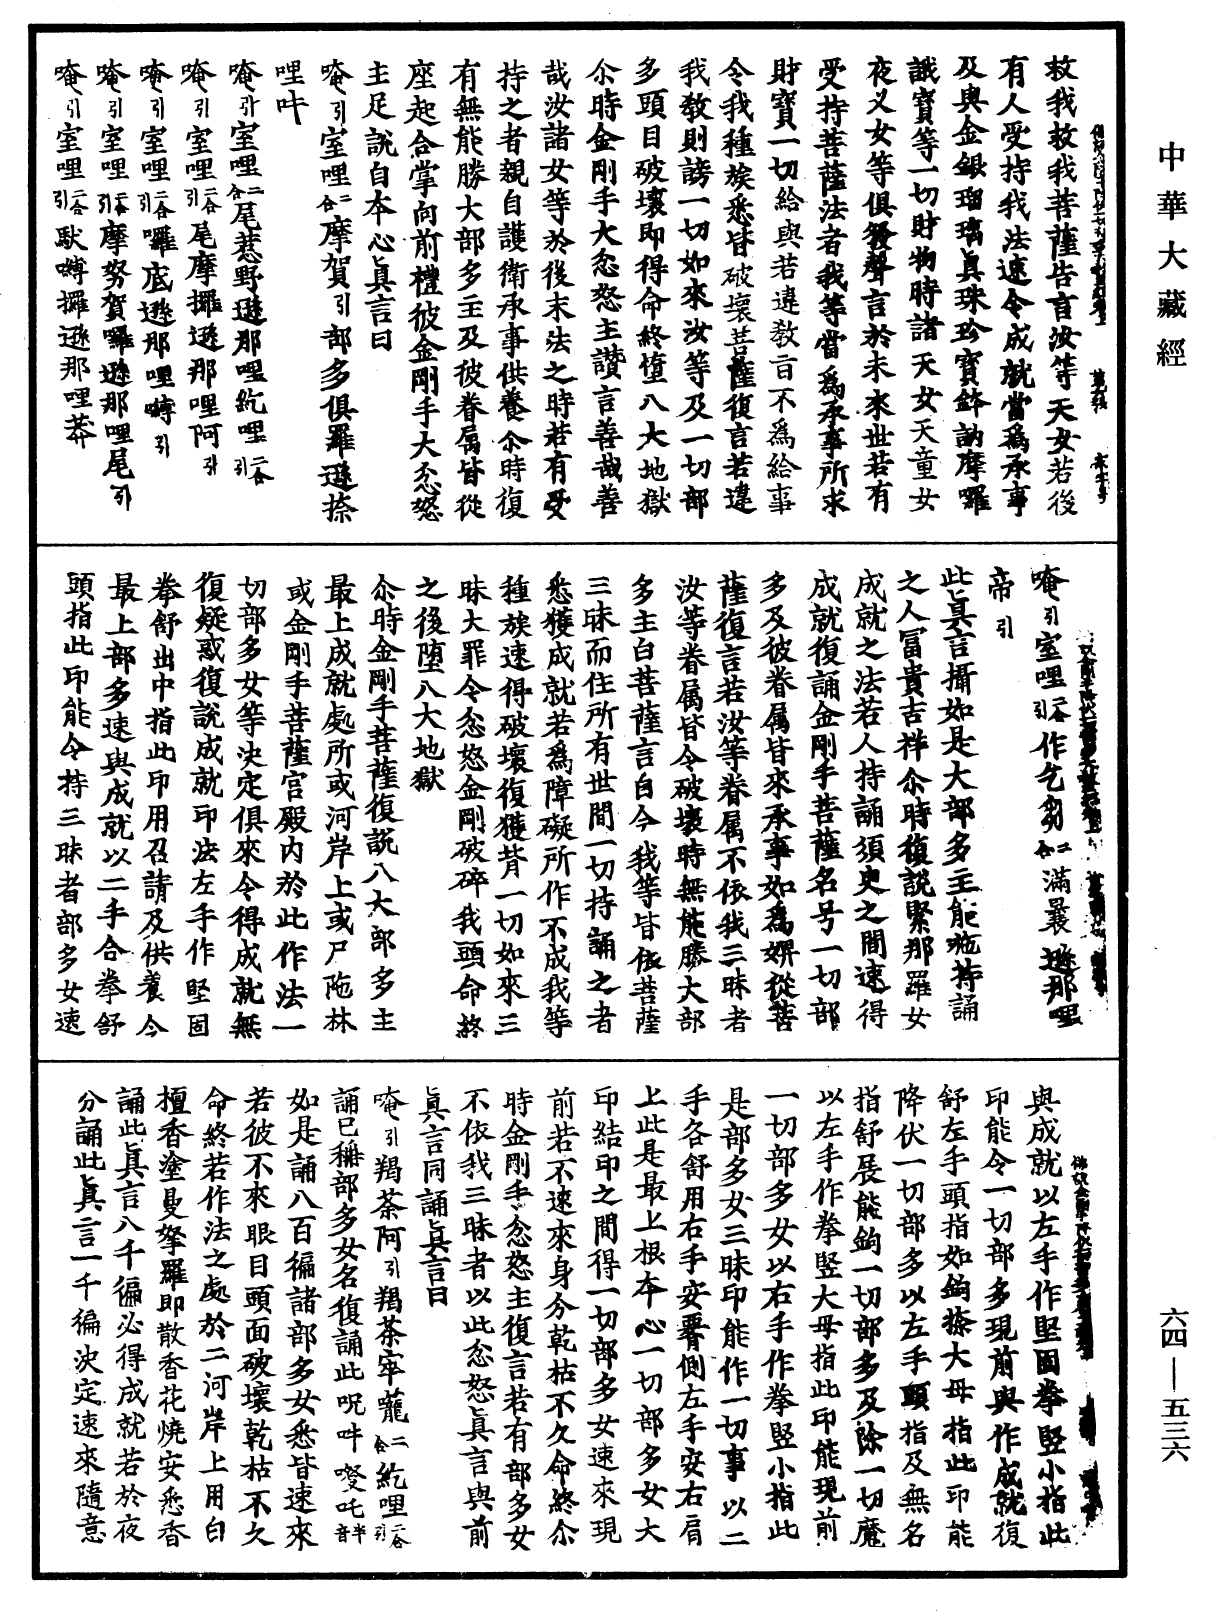 中華大藏經
救我救我菩薩告言汝等天女若後
有人受持我法速令成就當爲承事
及與金銀瑠璃眞珠珍寶鉢訥摩囉
誐寶等一切財物時諸天女天童女
夜叉女等俱發聲言於未來世若有
受持菩薩法者我等當爲承事所求
財寶一切給與若違敎旨不爲給事
令我種族悉皆破壞菩薩復言若違
我敎則謗一切如來汝等及一切部
多頭目破壞即得命終墮八大地獄
尒時金剛手大忿怒主讚言善哉善
哉汝諸女等於後末法之時若有受
持之者親自護衛承事供養尒時復
有無能勝大部多主及彼眷屬皆從
座起合掌向前禮彼金剛手大忿怒
主足說自本心眞言曰
唵引室哩二合摩賀引部多俱羅遜捺
哩吽
唵引室哩二合尾惹野遜那哩紇哩二合引
唵引室哩二合引尾摩攞遜那哩阿引
唵引室哩二合引囉底遜那哩嚩引
唵引室哩二合引摩努賀囉遜那哩尾引
唵引室哩二合引馱嚩攞遜那哩莽
唵引室哩二合引作乞芻二合滿曩遜那哩
帝引
此眞言攝如是大部多主能施持誦
之人冨貴吉祥尒時復說緊那羅女
成就之法若人持誦須臾之間速得
成就復誦金剛手菩薩名号一切部
多及彼眷屬皆來承事如為婢從菩
薩復言若汝等眷屬不依我三昧者
汝等眷屬皆令破壞時無能勝大部
多主白菩薩言自今我等皆依菩薩
三昧而住所有世間一切持誦之者
悉獲成就若爲障礙所作不成我等
種族速得破壞復獲背一切如來三
昧大罪令忿怒金剛破碎我頭命終
之後墮八大地獄
尒時金剛手菩薩復說八大部多主
最上成就處所或河岸上或尸陁林
或金剛手菩薩宮殿内於此作法一
切部多女等決定俱來令得成就無
復疑惑復說成就印法左手作堅固
拳舒出中指此印用召請及供養令
最上部多速與成就以二手合拳舒
頭指此印能令持三昧者部多女速
與成就以左手作堅固拳竪小指此
印能令一切部多現前與作成就復
舒左手頭指如鉤捺大母指此印能
降伏一切部多以左手頭指及無名
指舒展能鉤一切部多及除一切魔
以左手作拳竪大母指此印能現前
一切部多女以右手作拳竪小指此
是部多女三昧印能作一切事以二
手各舒用右手安臍側左手安右肩
上此是最上根本心一切部多女大
印結印之間得一切部多女速來現
前若不速來身分乾枯不久命終尒
時金剛手忿怒主復言若有部多女
不依我三昧者以此忿怒眞言與前
眞言同誦眞言曰
唵引羯荼阿引羯荼宰蘢二合紇哩二合引
誦已稱部多女名復誦此呪吽㘕吒半音
如是誦八百徧諸部多女悉皆速來
若彼不來眼目頭面破壞乾枯不久
命終若作法之處於二河岸上用白
檀香塗曼拏羅即散香花燒安悉香
誦此眞言八千徧必得成就若於夜
分誦此眞言一千徧決定速來隨意
六四—五三六